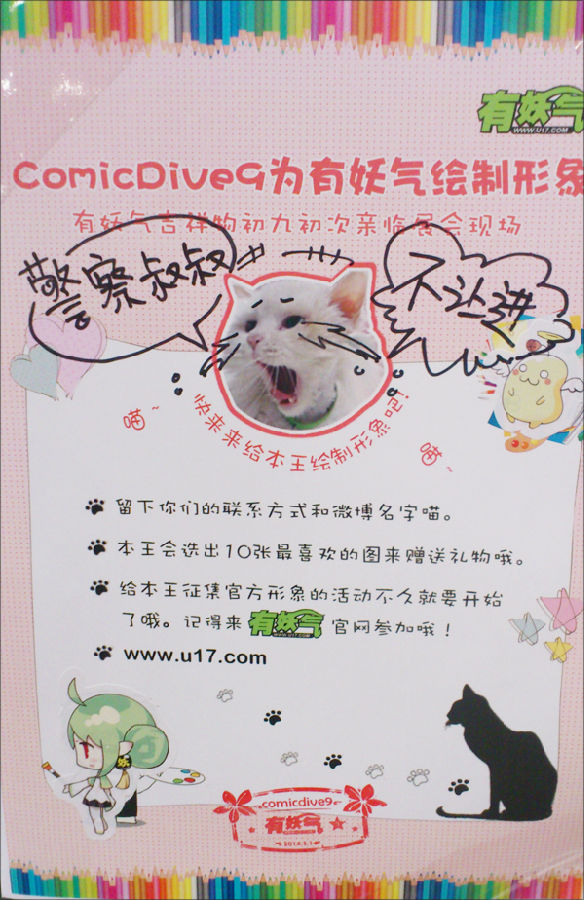 有妖气
WWW.U17.COM
ComicDive9为有妖气绘制形象
有妖气吉祥物初九初次亲临展会现场
警察叔叔
不让进
喵~
快来来给本王绘制形象吧!
喵~
留下你们的联系方式和微博名字喵。
本王会选出10张最喜欢的图来赠送礼物哦。
给本王征集官方形象的活动不久就要开始
了哦。记得来有妖气官网参加哦！
www.u17.com
妖
comicdive9
有妖气